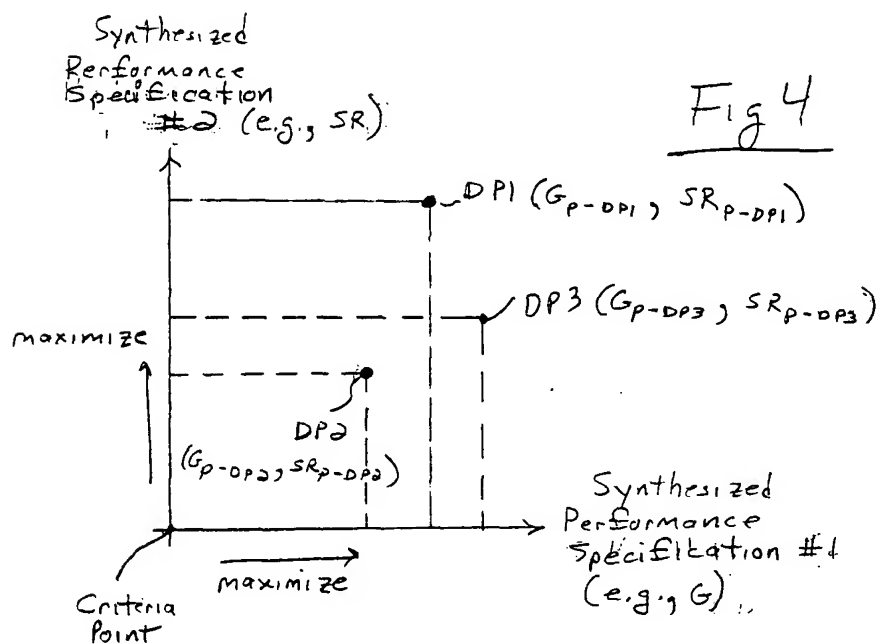 Synthesized
Performance
Specification
#2 (e.g., SR)
Fig 4
DP1 (G_{P-DP1}, SR_{P-DP1})
DP3 (G_{P-DP3}, SR_{P-DP3})
maximize
DP2
(G_{P-DP2}, SR_{P-DP2})
Synthesized
Performance
Specification #1
(e.g., G)
maximize
Criteria
Point